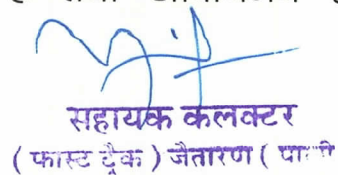 सहायक कलक्टर
( फास्ट ट्रैक ) जैतारण ( पाली